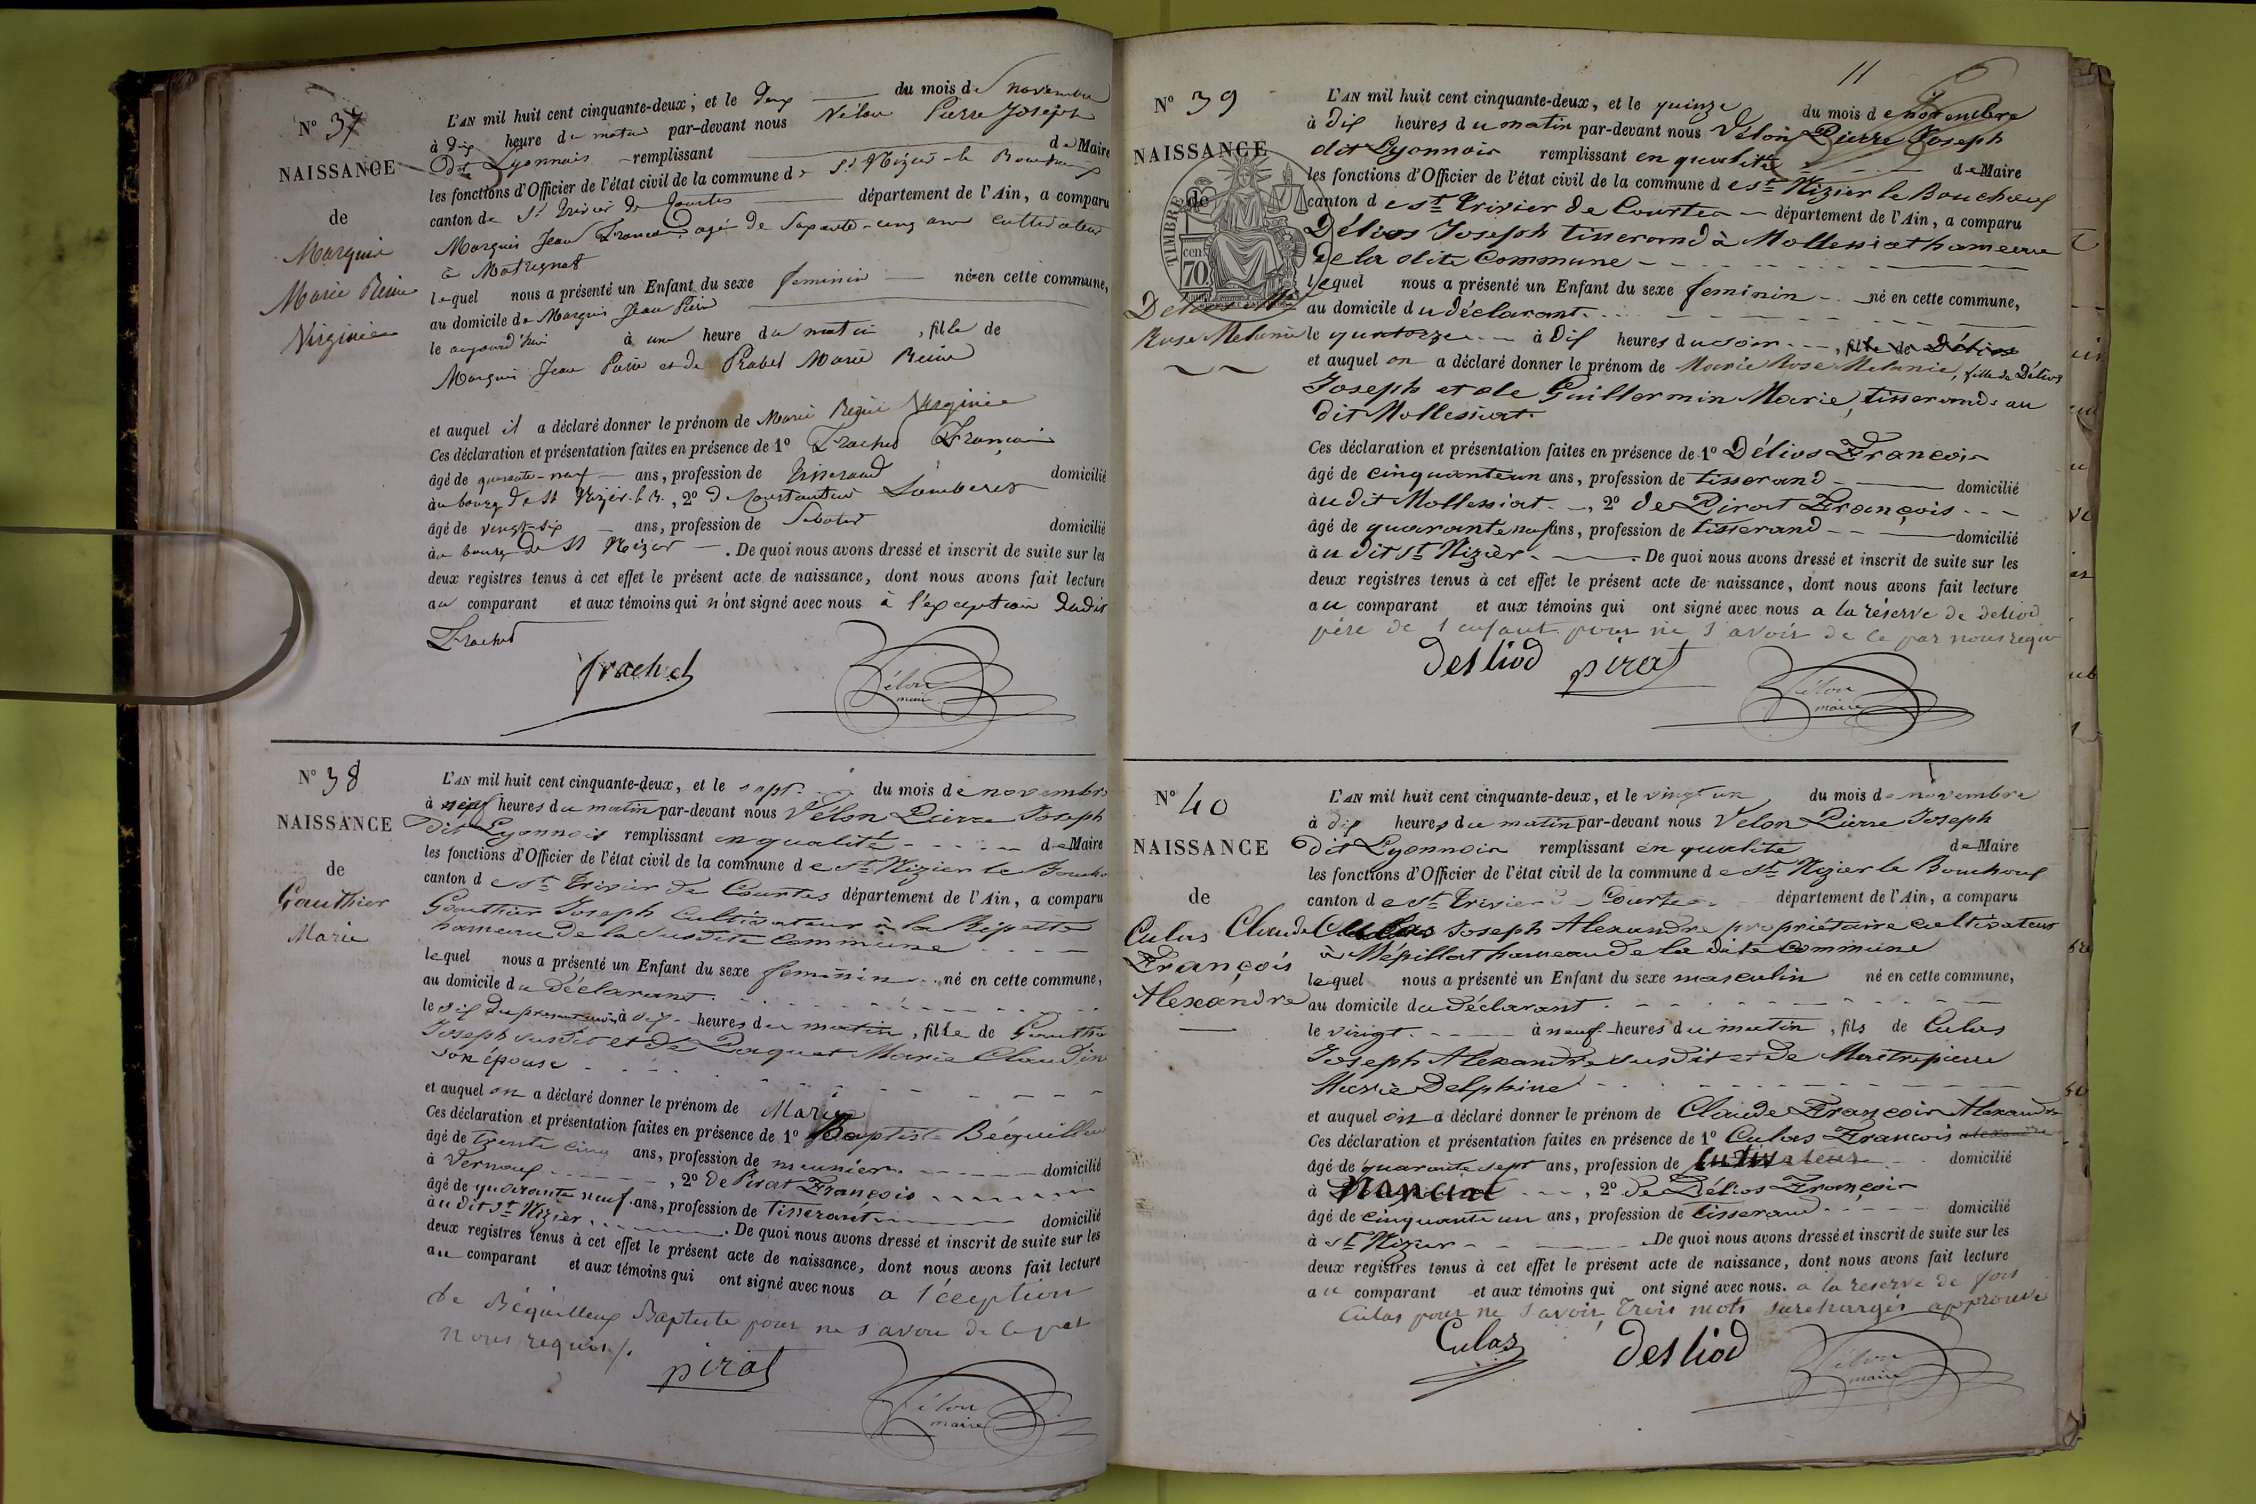 N° 37
NAISSANCE
de
Marquis
Marie Reine
Virginie
L'AN mil huit cent cinquante-deux, et le deux du mois de novembre
à dix heure du matin par-devant nous Vélon Pierre Joseph
dit Lyonnais remplissant de Maire
les fonctions d'Officier de l'état civil de la commune de St Nizier le Bouchoux
canton de St Trivier de Courtes département de l'Ain, a comparu
Marquis Jean agé de Soixante-cinq ans cultivateur
à
lequel nous a présenté un Enfant du sexe feminin né en cette commune,
au domicile de Marquis Jean
le aujourd'hui à une heure du matin, fille de
Marquis Jean et de Marie Reine
et auquel il a déclaré donner le prénom de Marie Reine Virginie
Ces déclaration et présentation faites en présence de 1° Frachet François
âgé de quarante-neuf ans, profession de Tisserand domicilié
au bourg de St Nizier-le-B., 2° de Constantin
âgé de vingt-six ans, profession de Sabotier domicilié
au bourg de St Nizier. De quoi nous avons dressé et inscrit de suite sur les
deux registres tenus à cet effet le présent acte de naissance, dont nous avons fait lecture
au comparant et aux témoins qui n'ont signé avec nous à l'exception dudit
Frachet
frachet
Vélon
maire
N° 38
NAISSANCE
de
Gauthier
Marie
L'AN mil huit cent cinquante-deux, et le sept du mois de novembre
à heures du matin par-devant nous Vélon Pierre Joseph
dit Lyonnois remplissant en qualité de Maire
les fonctions d'Officier de l'état civil de la commune de St Nizier le Boucho
canton de St Trivier de Courtes département de l'Ain, a comparu
Gauthier Joseph Cultivateur à la
hameau de la susdite Commune
lequel nous a présenté un Enfant du sexe feminin né en cette commune,
au domicile du déclarant
le six du present mois à dix heures du matin, fille de Gauthie
Joseph susdit et de Paquet Marie Claudine
son épouse
et auquel on a déclaré donner le prénom de Marie
Ces déclaration et présentation faites en présence de 1° Baptiste Béquilleux
âgé de trente cinq ans, profession de meunier domicilié
à Vernoux, 2° de Pirat François
âgé de quarante neuf ans, profession de tisserant domicilié
au dit St Nizier. De quoi nous avons dressé et inscrit de suite sur les
deux registres tenus à cet effet le présent acte de naissance, dont nous avons fait lecture
au comparant et aux témoins qui ont signé avec nous a l'ception
de Béquilleux Baptiste pour ne savoir de ce par
nous requis
pirat
Vélon
maire
11
N° 39
NAISSANCE
de
TIMBRE
70
Rose Melanie
L'AN mil huit cent cinquante-deux, et le quinze du mois de novembre
à dix heures du matin par-devant nous Vélon Pierre Joseph
dit Lyonnois remplissant en qualité de Maire
les fonctions d'Officier de l'état civil de la commune de St Nizier le Bouchoux
canton de St Trivier de Courtes département de l'Ain, a comparu
Délios Joseph tisserand à Mollessiat hameau
de la dite Commune
lequel nous a présenté un Enfant du sexe feminin né en cette commune,
au domicile du déclarant
le quatorze à dix heures du soir, fille de Délios
et auquel on a déclaré donner le prénom de Marie Rose Melanie, fille de Délios
Joseph et de Guillermin Marie, tisserands au
dit Mollessiat.
Ces déclaration et présentation faites en présence de 1° Délios François
âgé de cinquante un ans, profession de tisserand domicilié
au dit Mollessiat, 2° de Pirat François
âgé de quarante neuf ans, profession de tisserand domicilié
au dit St Nizier. De quoi nous avons dressé et inscrit de suite sur les
deux registres tenus à cet effet le présent acte de naissance, dont nous avons fait lecture
au comparant et aux témoins qui ont signé avec nous a la réserve de deliod
père de l'enfant pour ne savoir de ce par nous requis
desliod pirat
Vélon
maire
N° 40
NAISSANCE
de
Culas Claude
François
Alexandre
L'AN mil huit cent cinquante-deux, et le vingt un du mois de novembre
à dix heures du matin par-devant nous Velon Pierre Joseph
dit Lyonnois remplissant en qualité de Maire
les fonctions d'Officier de l'état civil de la commune de St Nizier le Bouchoux
canton de St Trivier de Courtes département de l'Ain, a comparu
Culas Joseph Alexandre propriétaire cultivateur
à Mépillat hameau de la dite Commune
lequel nous a présenté un Enfant du sexe masculin né en cette commune,
au domicile du déclarant
le vingt à neuf heures du matin, fils de Culas
Joseph Alexandre susdit et de
Marie Delphine
et auquel on a déclaré donner le prénom de Claude François Alexandre
Ces déclaration et présentation faites en présence de 1° Culas François alexandre
âgé de quarante sept ans, profession de Cultivateur domicilié
à, 2° de Délios François
âgé de cinquante un ans, profession de tisserand domicilié
à St Nizier. De quoi nous avons dressé et inscrit de suite sur les
deux registres tenus à cet effet le présent acte de naissance, dont nous avons fait lecture
au comparant et aux témoins qui ont signé avec nous. a la reserve de fois
Culas pour ne savoir, trois mots surchargés approuvé
Culas desliod
Vélon
maire